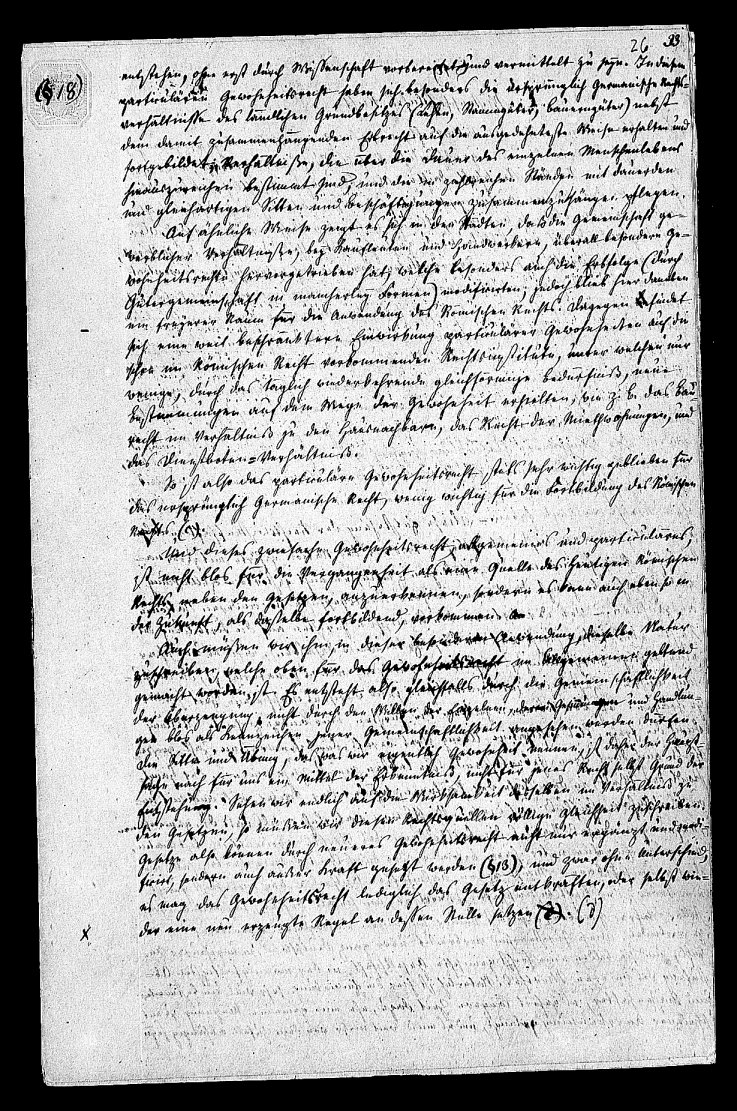 26 33
(§ 18)
entstehen, ohne erst durch Wissenschaft vorbereitet und vermittelt zu seyn. In diesem
particulären Gewohnheitsrecht haben sich besonders die ursprünglich Germanische Rechts-
verhältnisse des ländlichen Grundbesitzes (Lehen, Stammgüter, Bauerngüter) nebst
dem damit zusammenhangenden Erbrecht auf die ausgedehnteste Weise erhalten und
fortgebildet; Verhältnisse, die über die Dauer des einzelnen Menschenlebens
hinauszureichen bestimmt sind, und die in zahlreichen Ständen mit dauernden
und gleichartigen Sitten und Beschäftigungen zusammenzuhängen pflegen.
Auf ähnliche Weise zeigt es sich in den Städten, daß die Gemeinschaft ge-
werblicher Verhältnisse, bey Kaufleuten und Handwerkern, überall besondere Ge-
wohnheitsrechte hervorgetrieben hat, welche besonders auch die Erbfolge (durch
Gütergemeinschaft in mancherley Formen) modificirten; jedoch blieb hier daneben
ein freyerer Raum für die Anwendung des Römischen Rechts. Dagegen findet
sich eine weit beschränktere Einwirkung particulärer Gewohnheiten auf die
schon im Römischen Recht vorkommenden Rechtsinstitute, unter welchen nur
wenige, durch das täglich wiederkehrende gleichförmige Bedürfniß, neue
Bestimmungen auf dem Wege der Gewohnheit erhielten, wie z. B. das Bau
recht im Verhältniß zu den Hausnachbarn, das Recht der Miethwohnungen, und
das Dienstboten-Verhältniß.
So ist also das particuläre Gewohnheitsrecht stets sehr wichtig geblieben für
das ursprünglich Germanische Recht, wenig wichtig für die Fortbildung des Römischen
Rechts.
Und dieses zwiefache Gewohnheitsrecht, allgemeines und particuläres,
ist nicht blos für die Vergangenheit als eine Quelle des heutigen Römischen
Rechts, neben den Gesetzen, anzuerkennen, sondern es kann auch eben so in
der Zukunft, als dasselbe fortbildend, vorkommen.
Auch müssen wir ihm in dieser besonderen Anwendung, dieselbe Natur
zuschreiben, welche oben für das Gewohnheitsrecht im Allgemeinen geltend
gemacht worden ist. Es entsteht also gleichfalls durch die Gemeinschaftlichkeit
der Überzeugung, nicht durch den Willen der Einzelnen, deren Gesinnungen und Handlun-
gen blos als Kennzeichen jener Gemeinschaftlichkeit angesehen werden dürfen.
Die Sitte und Übung, das was wir eigentlich Gewohnheit nennen, ist daher der Haupt-
sache nach für uns ein Mittel der Erkenntniß, nicht für jenes Recht selbst Grund der
Entstehung. Sehen wir endlich auf die Wirksamkeit desselben im Verhältniß zu
den Gesetzen, so müssen wir diesen Rechtsquellen völlige Gleichheit zuschreiben.
Gesetze also können durch neueres Gewohnheitsrecht nicht nur ergänzt und modi-
ficirt, sondern auch außer Kraft gesetzt werden (§ 18), und zwar ohne Unterschied,
es mag das Gewohnheitsrecht lediglich das Gesetz entkräften, oder selbst wie-
der eine neu erzeugte Regel an dessen Stelle setzen
x